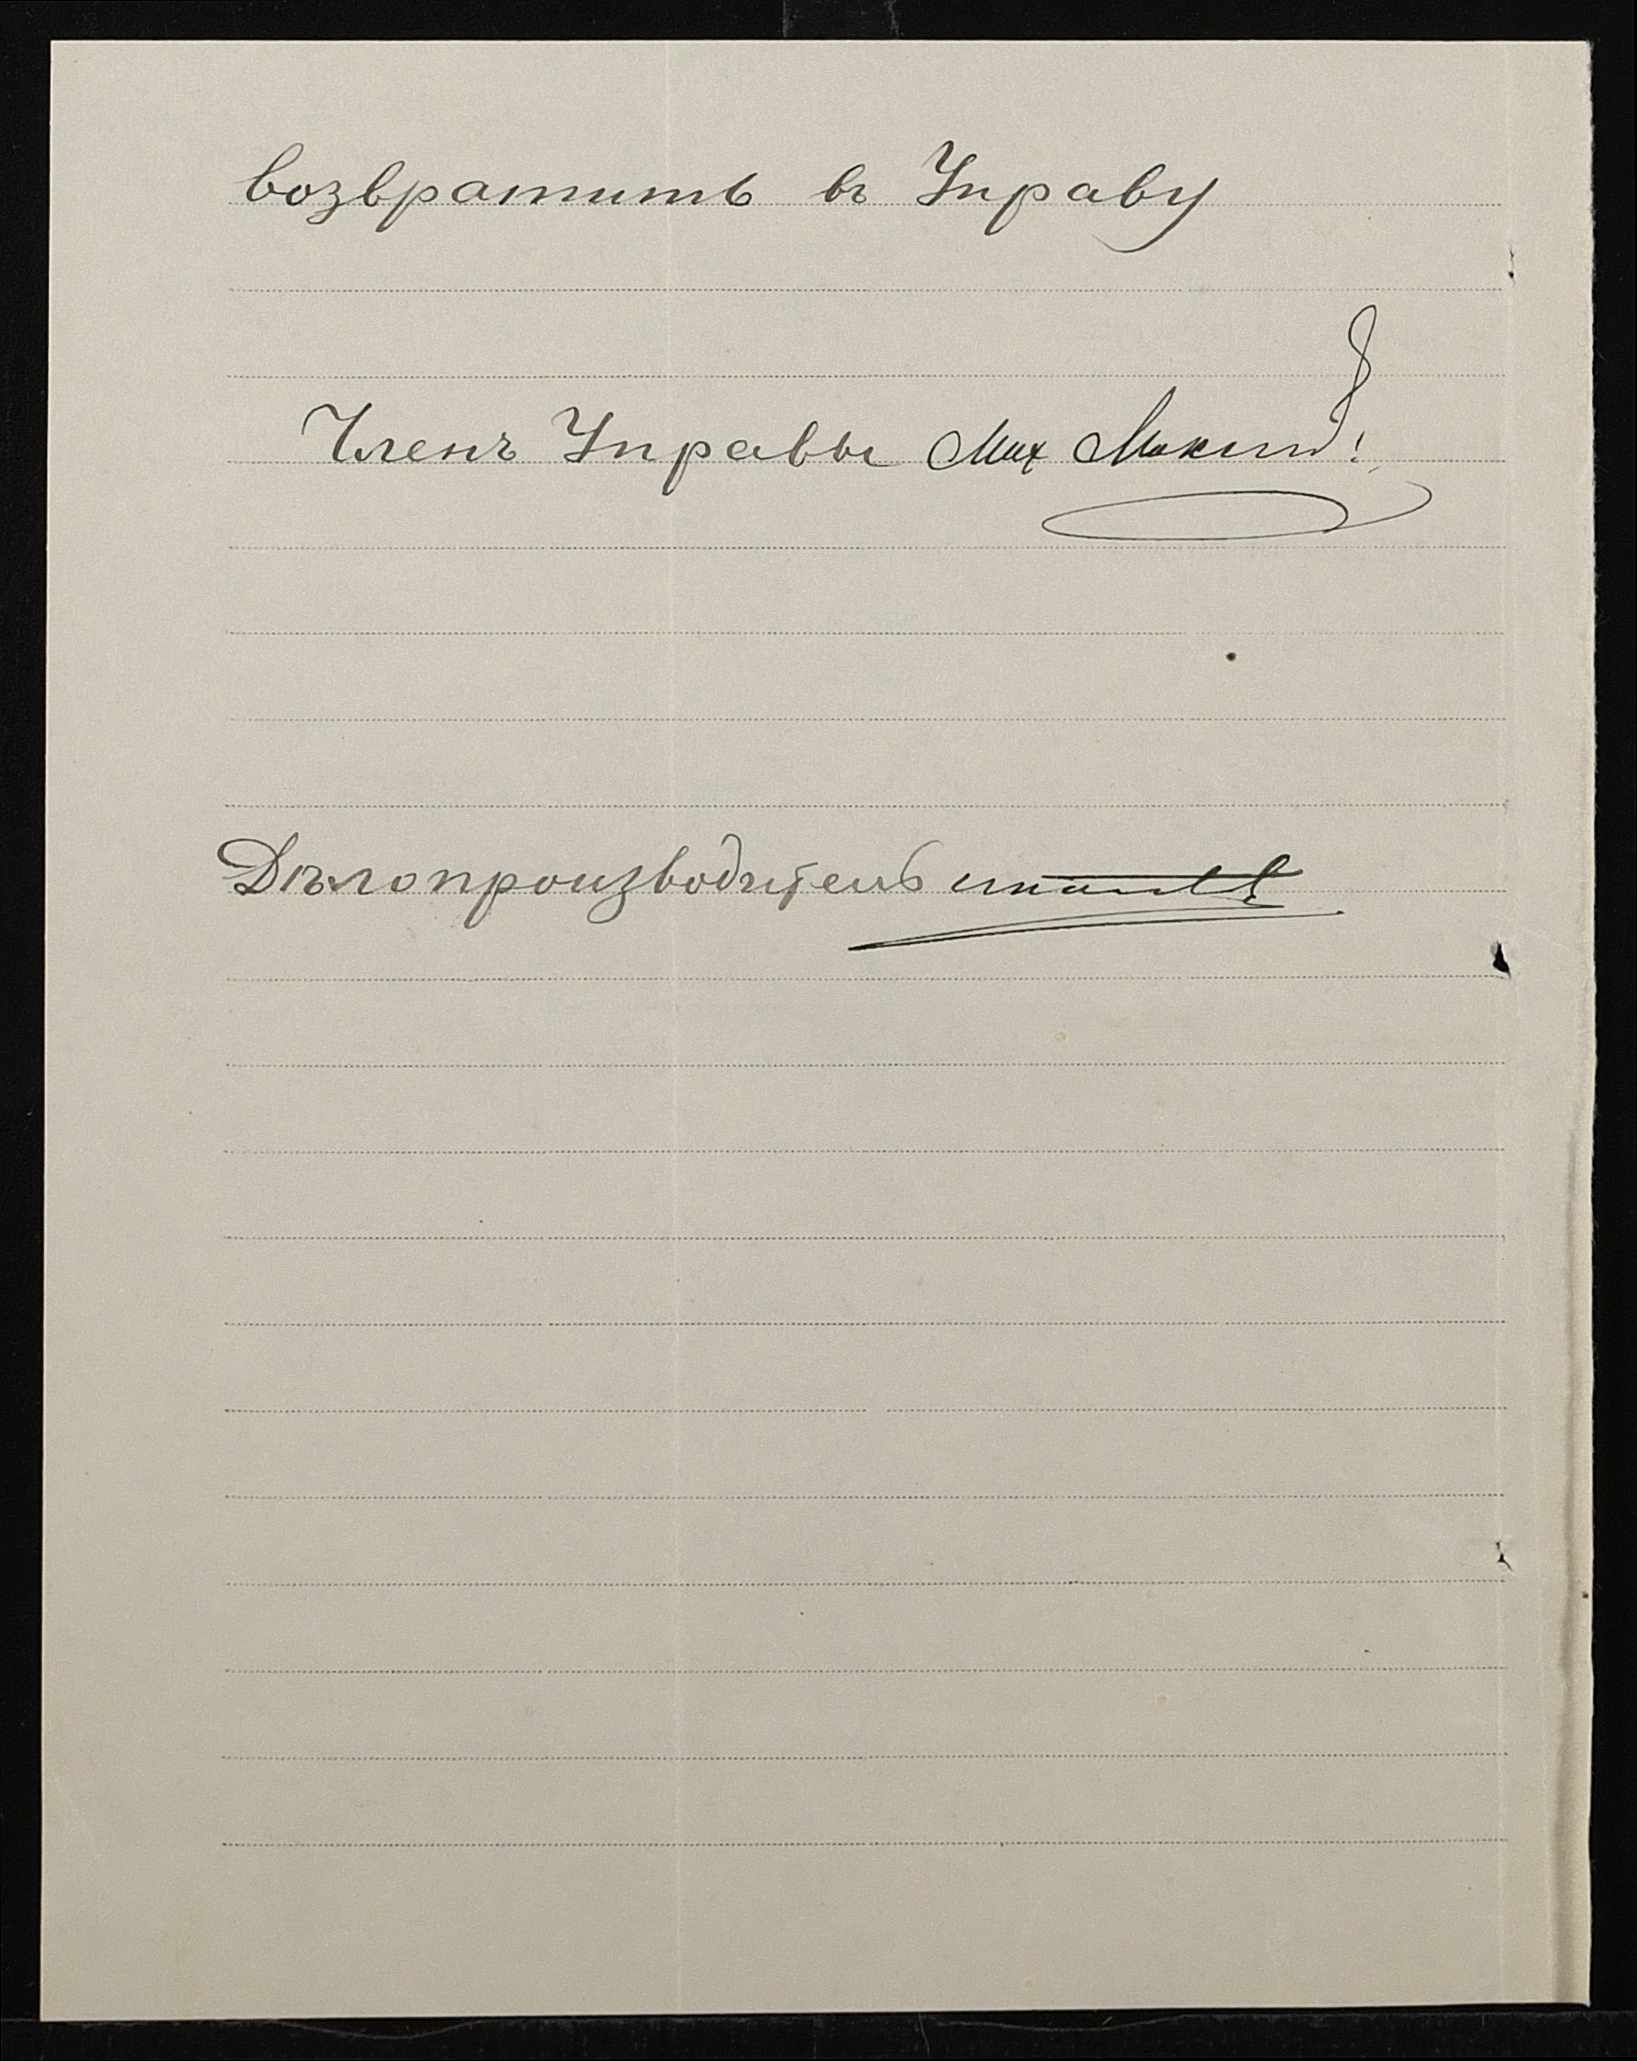 возвратить въ Управу
Членъ Управы Мих
Дѣлопроизводитель